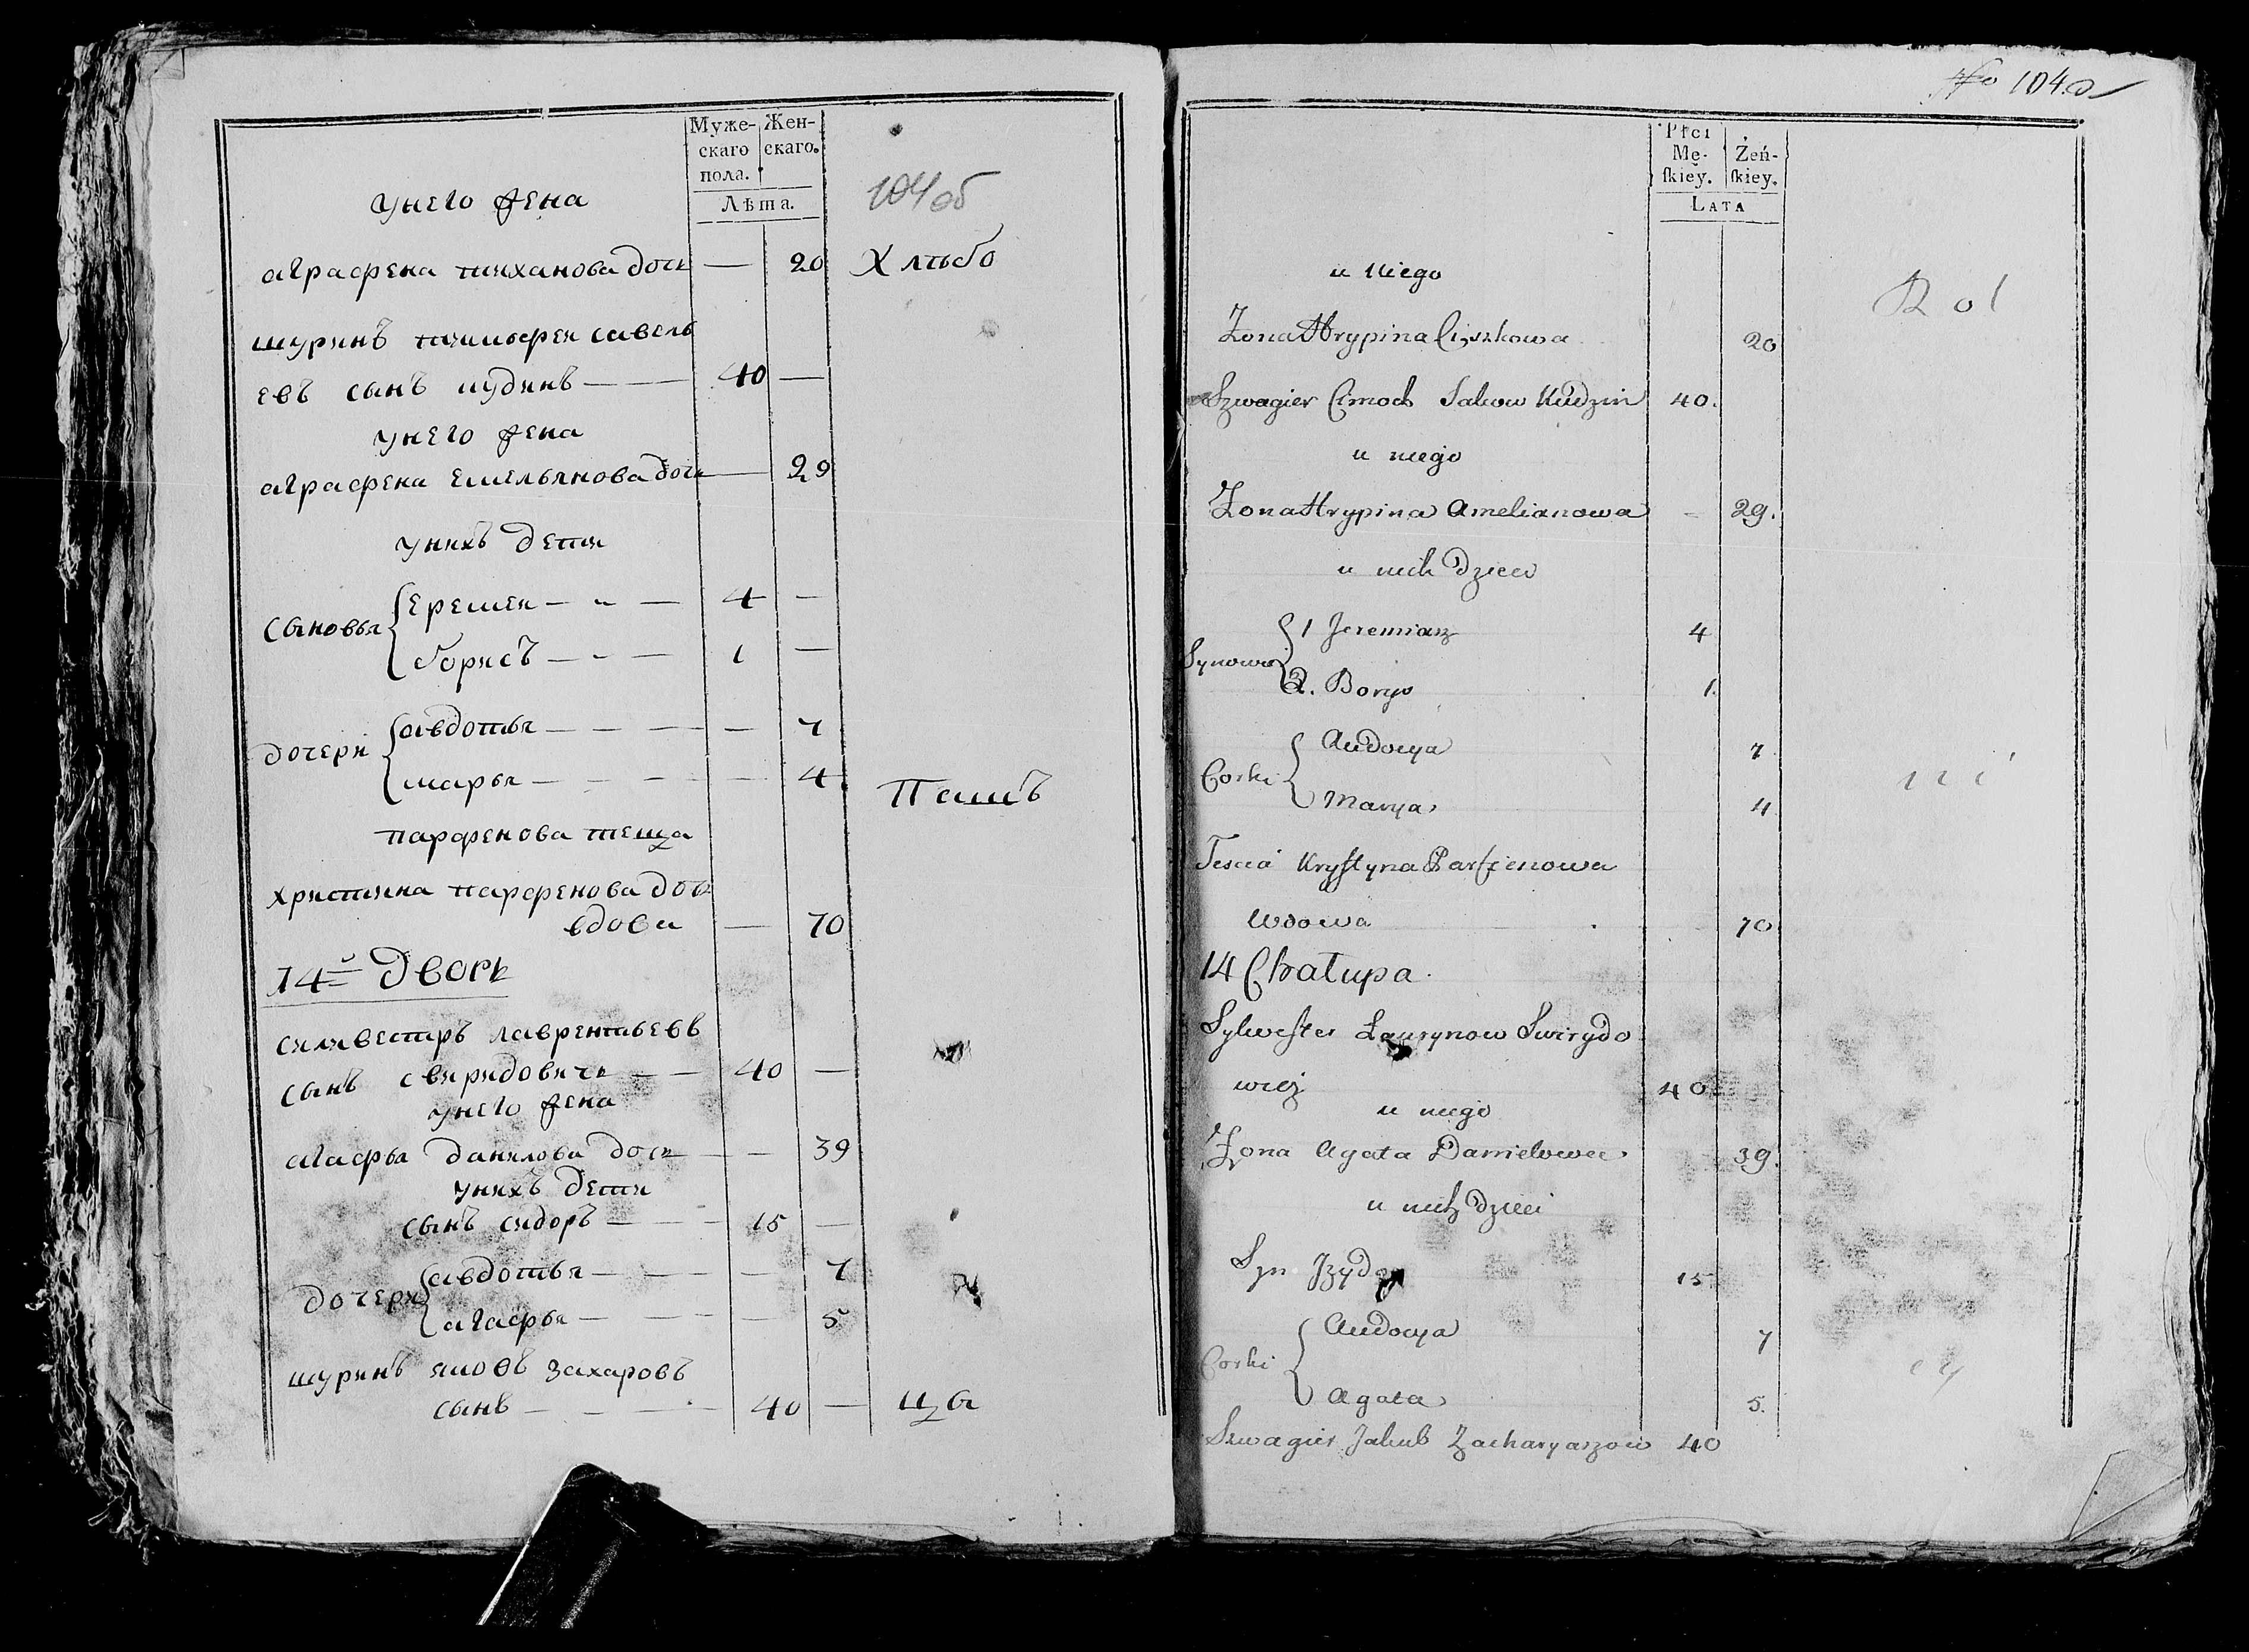 Муже-
скаго
пола.
Жен-
скаго.
Лѣта.
104об
унего жена
аграфена тихонова дочь — 20 Хлѣбо
шуринъ тимофеи савель
евъ сынъ кудинъ — 40 —
унего жена
аграфена Емельянова дочь — 29
унихъ дети
сыновья
Еремеи — 4 —
борисъ — 1 —
дочери
авдотья — — 7
марья — — 4
Пашъ
парфенова теща
христина парфенова дочь
вдова — 70
14й Дворъ
силивестръ лаврентьевъ
сынъ свиридовичь — 40 —
унего жена
агафья данилова дочь — 39
унихъ дети
сынъ сидоръ — 15 —
дочери
авдотья — — 7
агафья — — 5
шуринъ яковъ захаровъ
сынъ — 40 — цы
No 104
Płci
Mę-
skiey.
Żeń-
skiey.
LATA
u niego
Rol
Zona Hrypina Ciszkowa 20
Szwagier Cimoch Sakow Kudzin 40.
u niego
Zona Hrypina Amelianowa - 29.
u nich dzieci
Synowie
1 Jeremiasz 4
2. Borys 1.
Corki
Audocya 7.
Marya 4
nic
Tescia Krystyna Parfienowa
Wdowa 70
14 Chałupa.
Sylwester Laurynow Swirydo
wicz 40
u niego
Zona Agata Danielowa 39.
u nich dzieci
Syn Izydor 15
Corki
Audocya 7
Agata 5.
cy
Szwagier Jakub Zacharyaszow 40